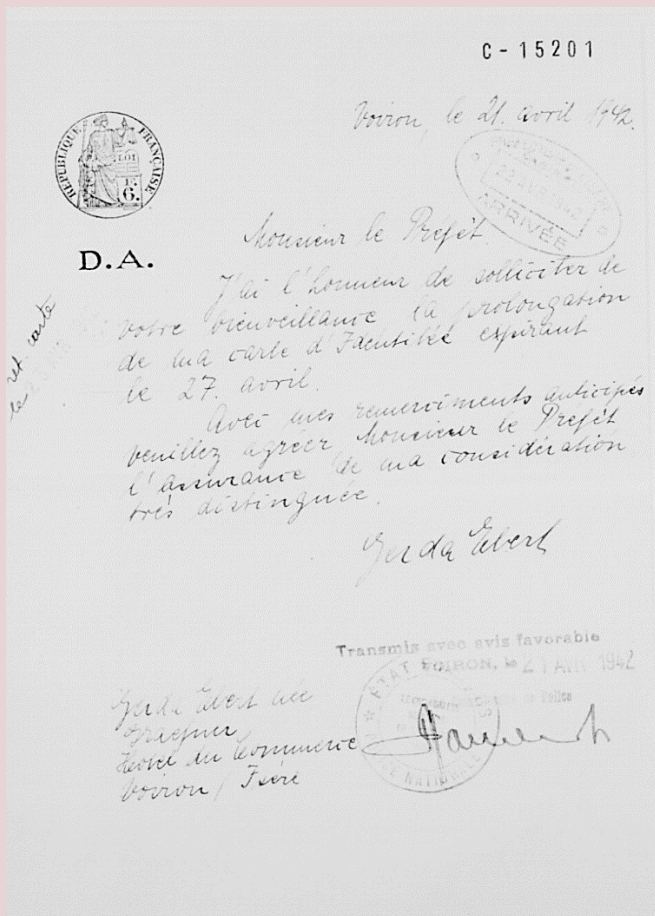 C-15201
Voiron, le 21. avril 1942.
RÉPUBLIQUE FRANÇAISE
LOI
6.
ARRIVÉE
D.A.
Monsieur le Préfet.
J'ai l'honneur de solliciter de
votre bienveillance la prolongation
de ma carte d'Identitée expirant
le 27. avril.
Avec mes remerciments anticipés
veuillez agréer Monsieur le Préfet
l'assurance de ma considération
très distinguée.
Gerda Ebert
carte
le
Transmis avec avis favorable
VOIRON, le 21 AVR 1942
ETAT
de Police
NATIONALE
Gerda Ebert née
Graefner
Hotel du Commerce
Voiron / Isère